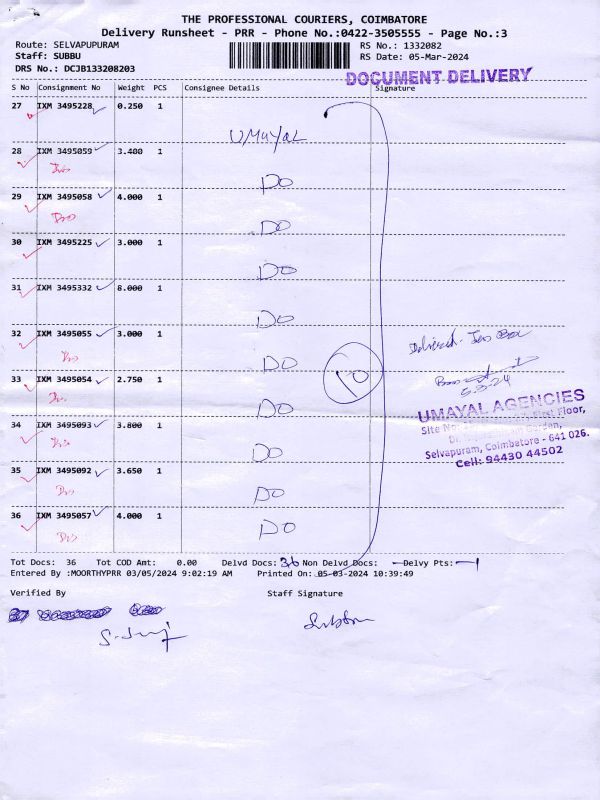 THE PROFESSIONAL COURIERS, COIMBATORE
Delivery Runsheet - PRR - Phone No.:0422-3505555 - Page No.:3
Route: SELVAPUPURAM
RS No.: 1332082
Staff: SUBBU
RS Date: 05-Mar-2024
DRS No.: DCJB133208203
DOCUMENT DELIVERY
S No Consignment No Weight PCS Consignee Details Signature
27 IXM 3495228 0.250 1
UMAYAL
28 IXM 3495059 3.400 1
DO
29 IXM 3495058 4.000 1
DO
30 IXM 3495225 3.000 1
DO
31 IXM 3495332 8.000 1
DO
32 IXM 3495055 3.000 1
DO
33 IXM 3495054 2.750 1
DO
34 IXM 3495093 3.800 1
DO
35 IXM 3495092 3.650 1
DO
36 IXM 3495057 4.000 1
DO
10
5-3-24
UMAYAL AGENCIES
Site No: First Floor,
Selvapuram, Coimbatore - 641 026.
Cell: 94430 44502
Tot Docs: 36 Tot COD Amt: 0.00 Delvd Docs: 36 Non Delvd Docs: — Delvy Pts: 1
Entered By :MOORTHYPRR 03/05/2024 9:02:19 AM Printed On: 05-03-2024 10:39:49
Verified By Staff Signature